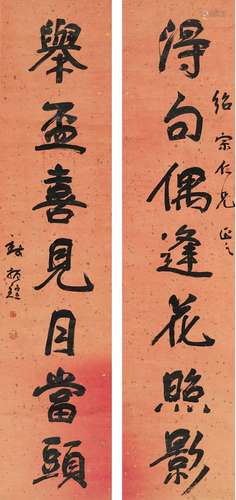 得句偶逢花照影
紹宗仁兄正之
舉盃喜見月當頭